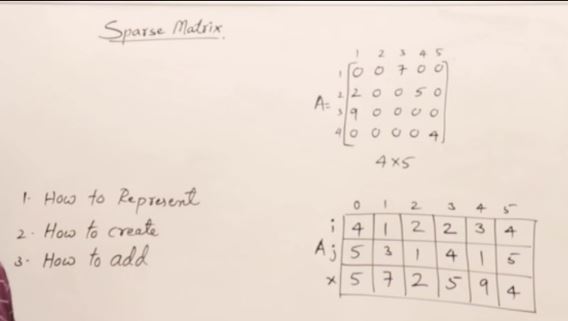 Sparse Matrix.
1 2 3 4 5
1 0 0 7 0 0
A= 2 2 0 0 5 0
3 9 0 0 0 0
4 0 0 0 0 4
4×5
1. How to Represent
2. How to create
3. How to add
0 1 2 3 4 5
i 4 1 2 2 3 4
A j 5 3 1 4 1 5
x 5 7 2 5 9 4